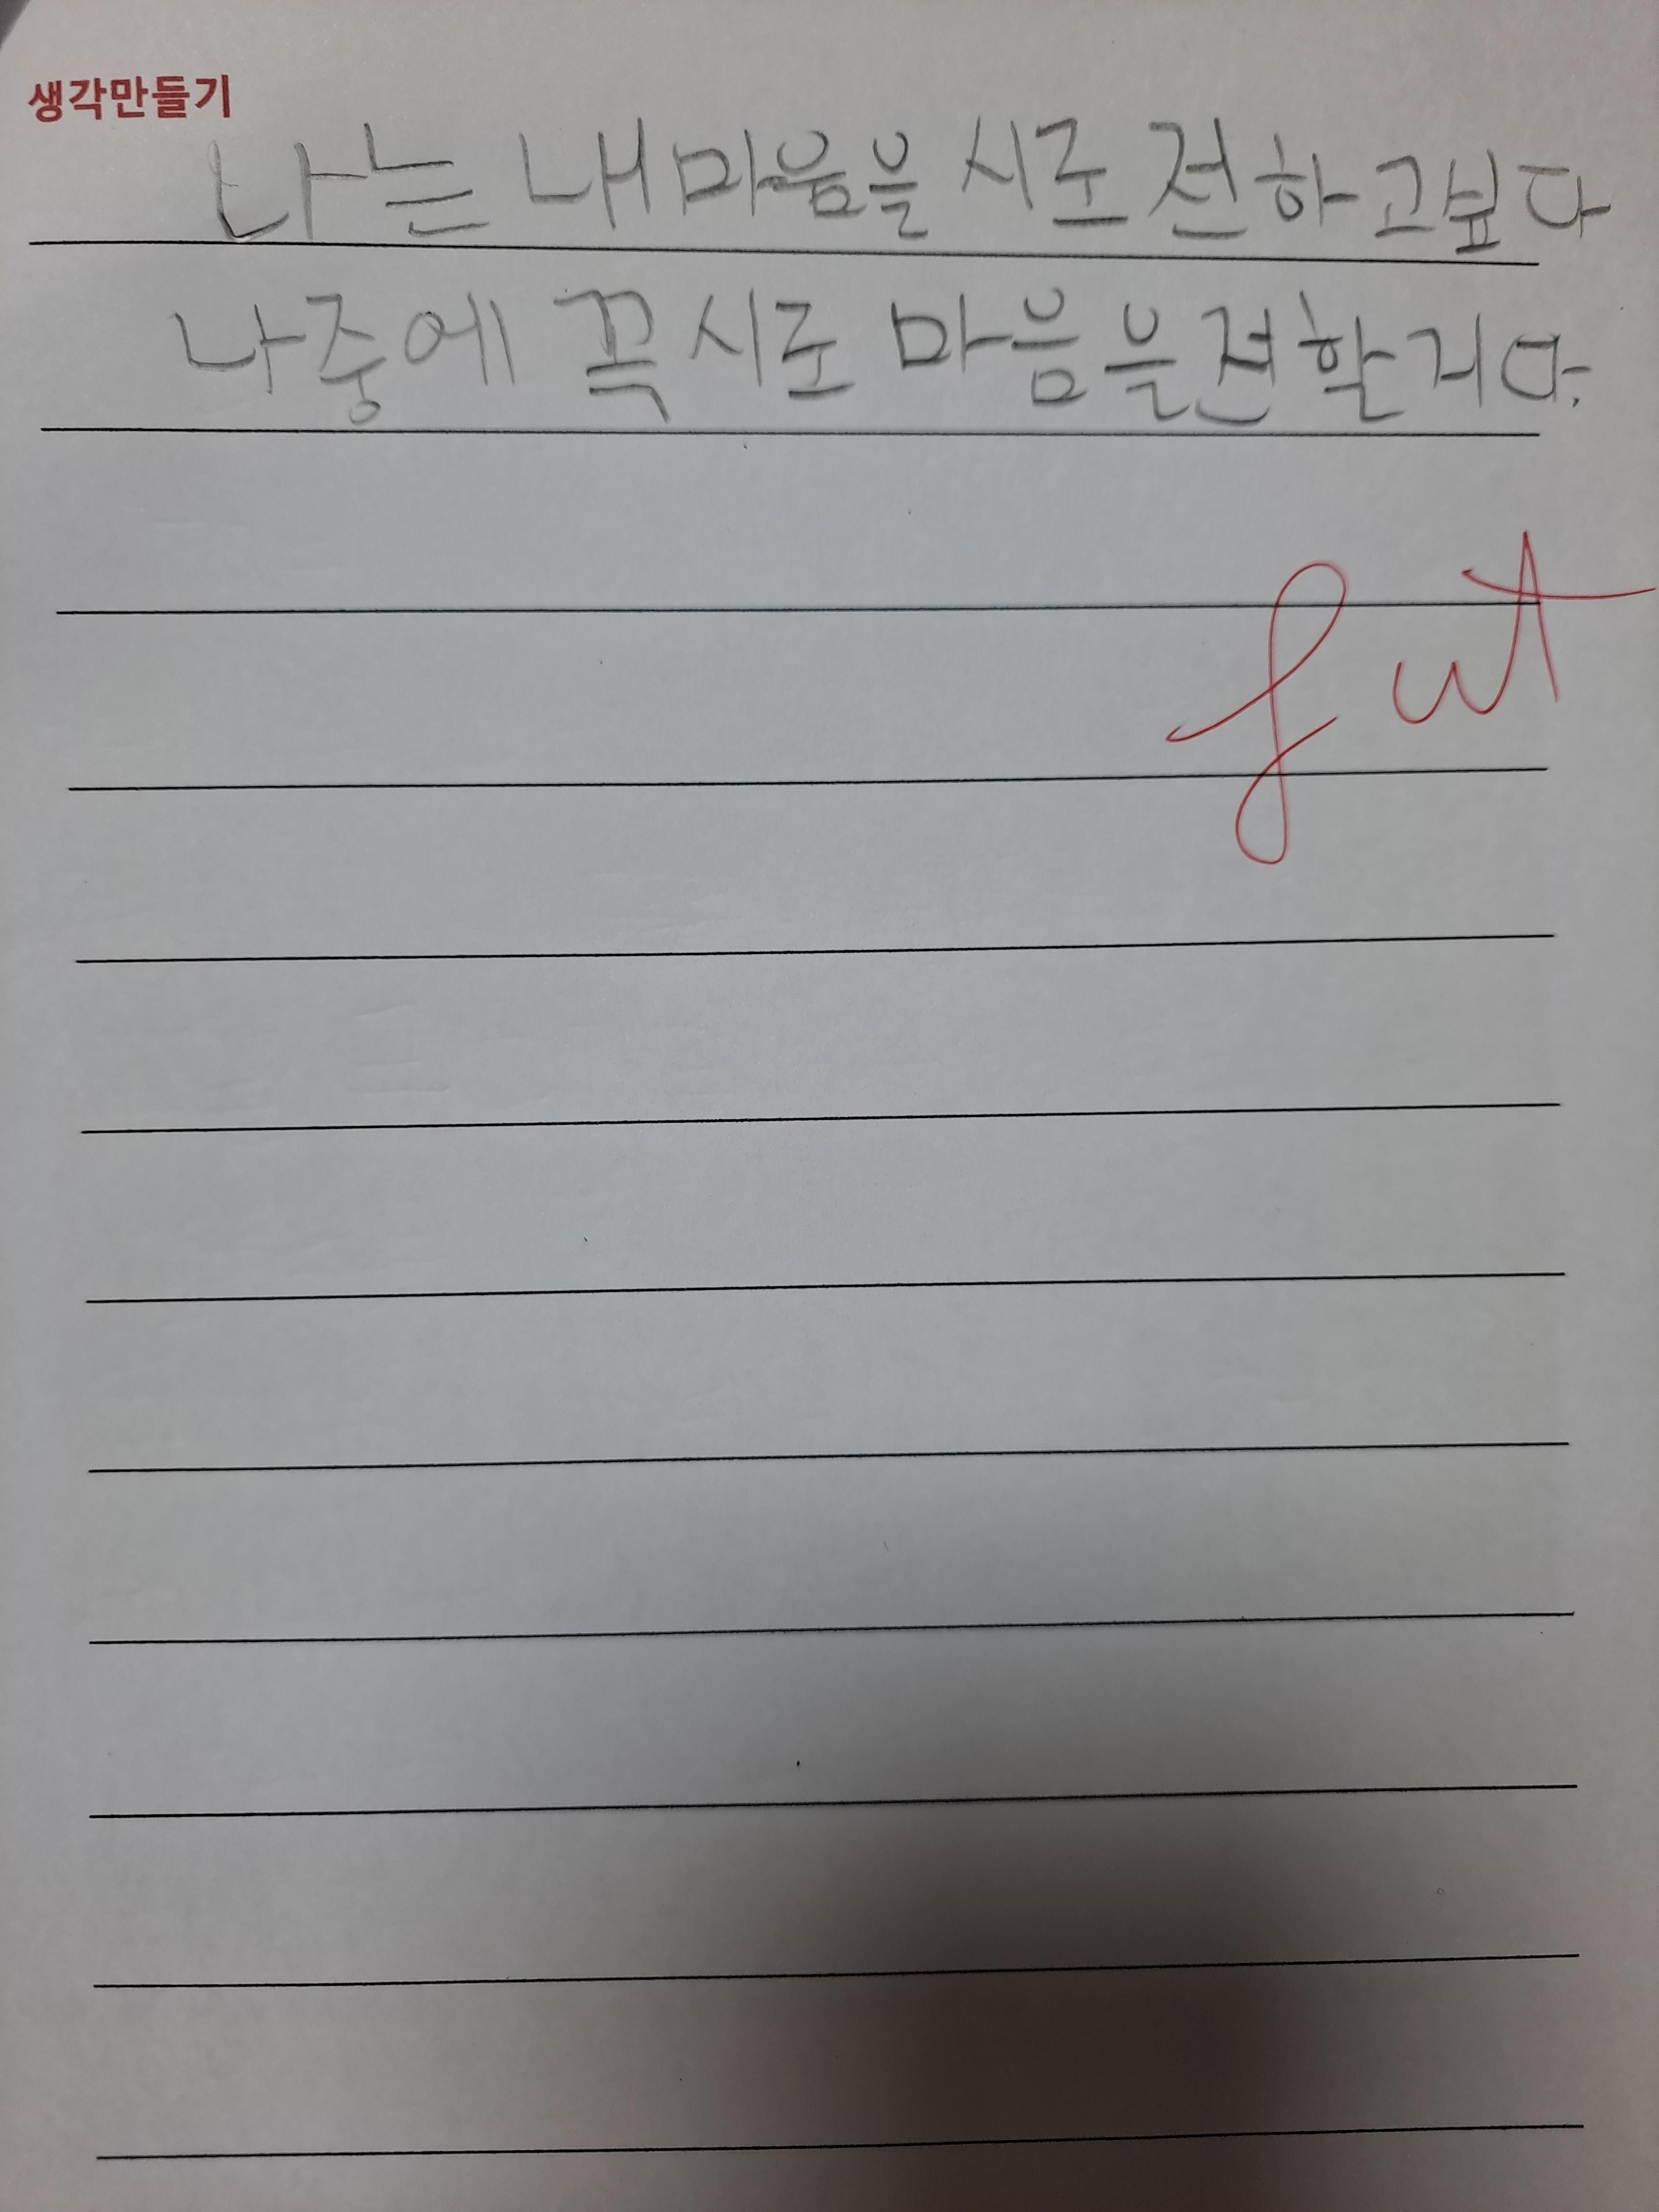 생각만들기
나는 내 마음을 시로 전하고싶다
나중에 꼭 시로 마음을 전할 거다.